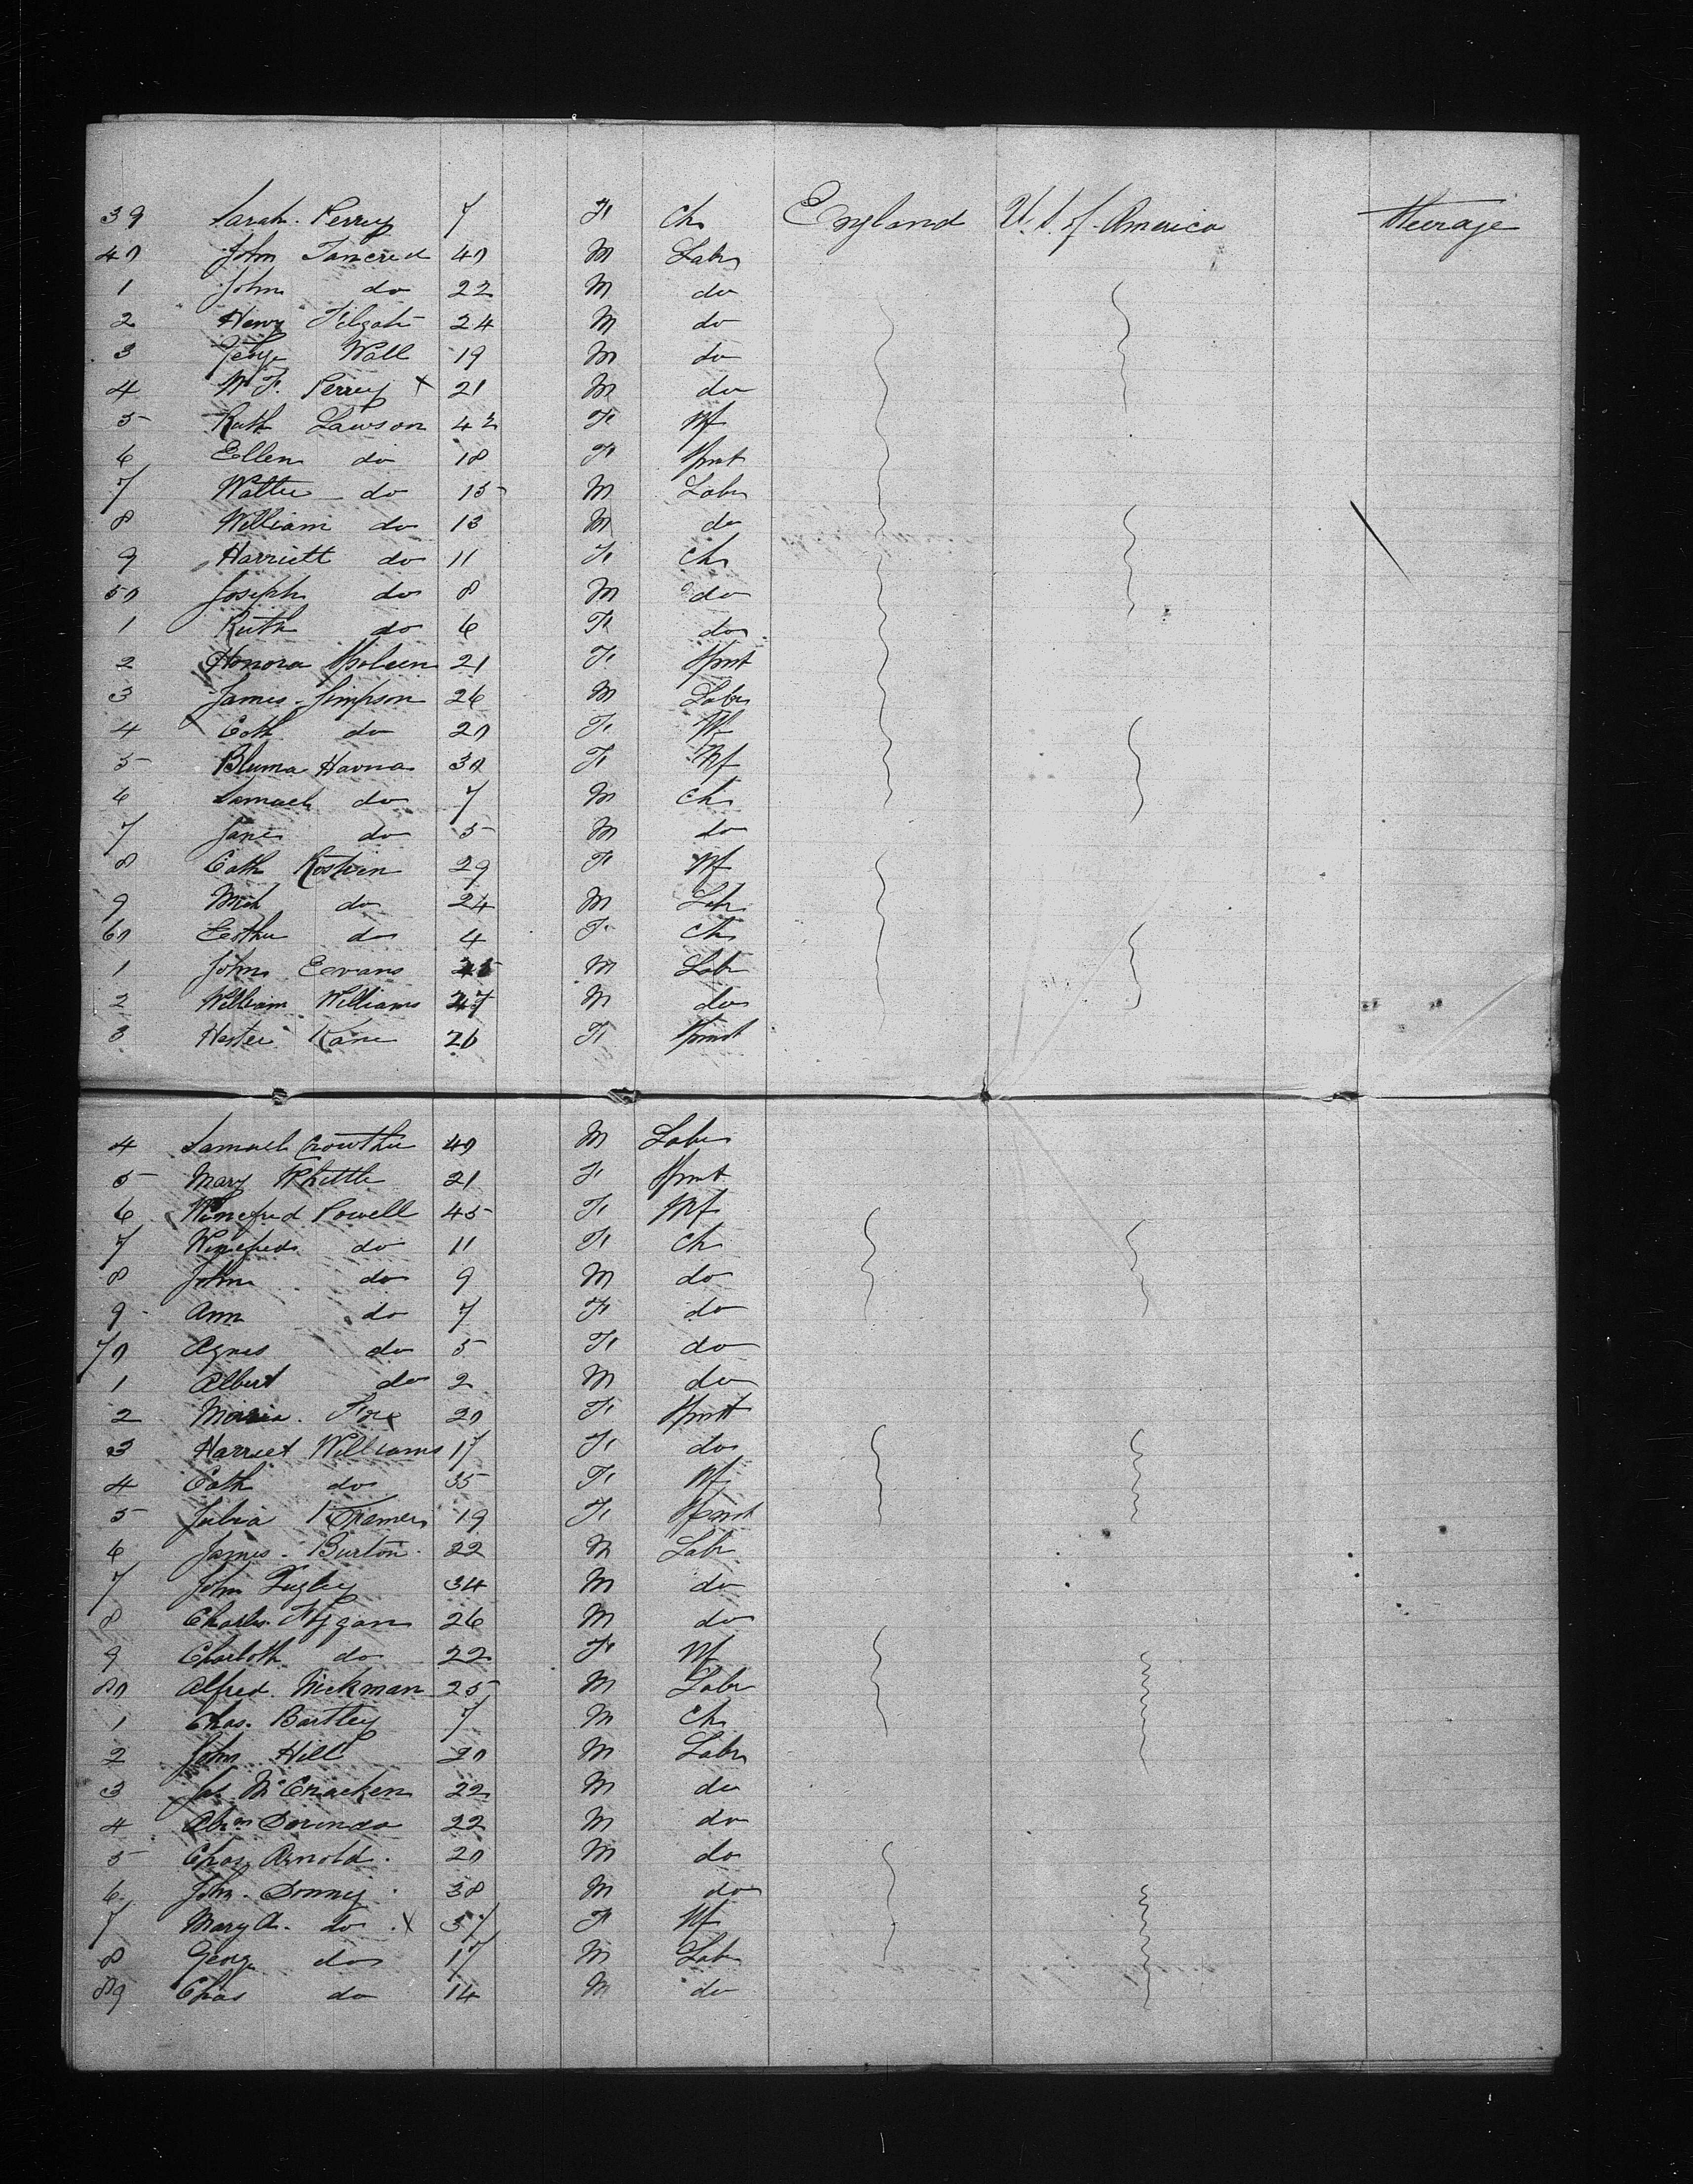 39 Sarah Perry 7 F Ch England U.S. of America Steerage
40 John Tancred 40 M Labr
1 John do 22 M do
2 Henry 24 M do
3 George Wall 19 M do
4 W F. Perry x 21 M do
5 Ruth Lawson 42 F Wf
6 Ellen do 18 F Spnst
7 Walter do 15 M Labr
8 William do 13 M do
9 Harriett do 11 F Ch
50 Joseph do 8 M do
1 Ruth do 6 F do
2 Honora 21 F Spnst
3 James Simpson 26 M Labr
4 Cath do 20 F Wf
5 Bluma Havna 30 F Wf
6 Samuel do 7 M Ch
7 Jane do 5 M do
8 Cath 29 F Wf
9 Mich do 24 M Labr
60 Esther do 4 F Ch
1 John Evans M Labr
2 William Williams 27 M do
3 Hester Kane 26 F Spnst
4 Samuel Crowther 40 M Labr
5 Mary Whittle 21 F Spnst
6 Winefred Powell 45 F Wf
7 Winefred do 11 F Ch
8 John do 9 M do
9 Ann do 7 F do
70 Agnes do 5 F do
1 Albert do 2 M do
2 Maria Fox 20 F Spnst
3 Harriet Williams 17 F do
4 Cath do 35 F Wf
5 Julia Kramer 19 F Spnst
6 James Burton 22 M Labr
7 John 34 M do
8 Charles 26 M do
9 Charloth do 22 F Wf
80 Alfred Hickman 25 M Labr
1 Chas. Bartley 7 M Ch
2 John Hill 20 M Labr
3 Jas McCracken 22 M do
4 Abm 22 M do
5 Chas Arnold 20 M do
6 John 38 M do
7 Mary A. do x 37 F Wf
8 George do 17 M Labr
89 Chas do 14 M do